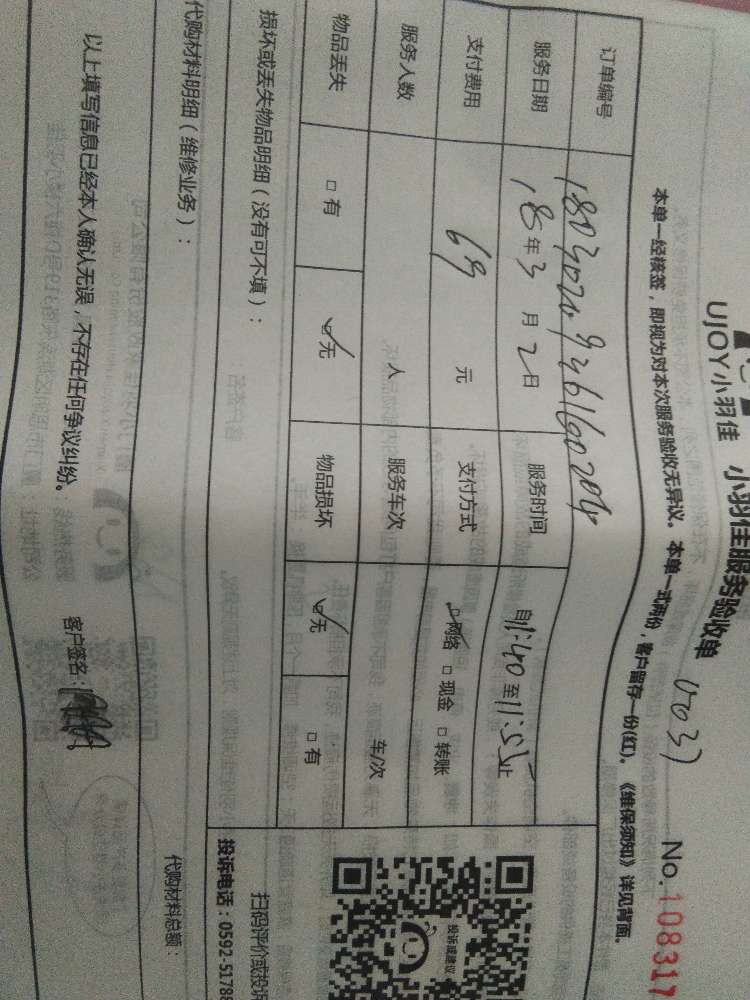 UJOY小羽佳 小羽佳服务验收单 No.108317
本单一经核签，即视为对本次服务验收无异议。本单一式两份，客户留存一份(红)。《维保须知》详见背面。
订单编号
服务日期 18年3月2日 服务时间 自11:40至11:55止
支付费用 69元 支付方式 ☑网络 □现金 □转账
服务人数 人 服务车次 车/次
物品丢失 □有 ☑无 物品损坏 ☑无 □有
损坏或丢失物品明细（没有可不填）：
代购材料明细（维修业务）： 代购材料总额：
以上填写信息已经本人确认无误，不存在任何争议纠纷。 客户签名：
投诉或建议
扫码评价或投诉
投诉电话：0592-5178